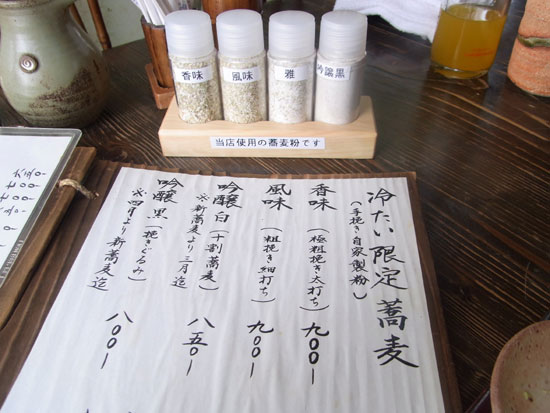 香味
風味
雅
吟醸黒
当店使用の蕎麦粉です
冷たい限定蕎麦
(手挽き・自家製粉)
香味(極粗挽き・太打ち)九〇〇-
風味(粗挽き・細打ち)九〇〇-
吟醸白(十割蕎麦)八五〇-
※新蕎麦より三月迄
吟醸黒(挽きぐるみ)八〇〇-
※四月より新蕎麦迄